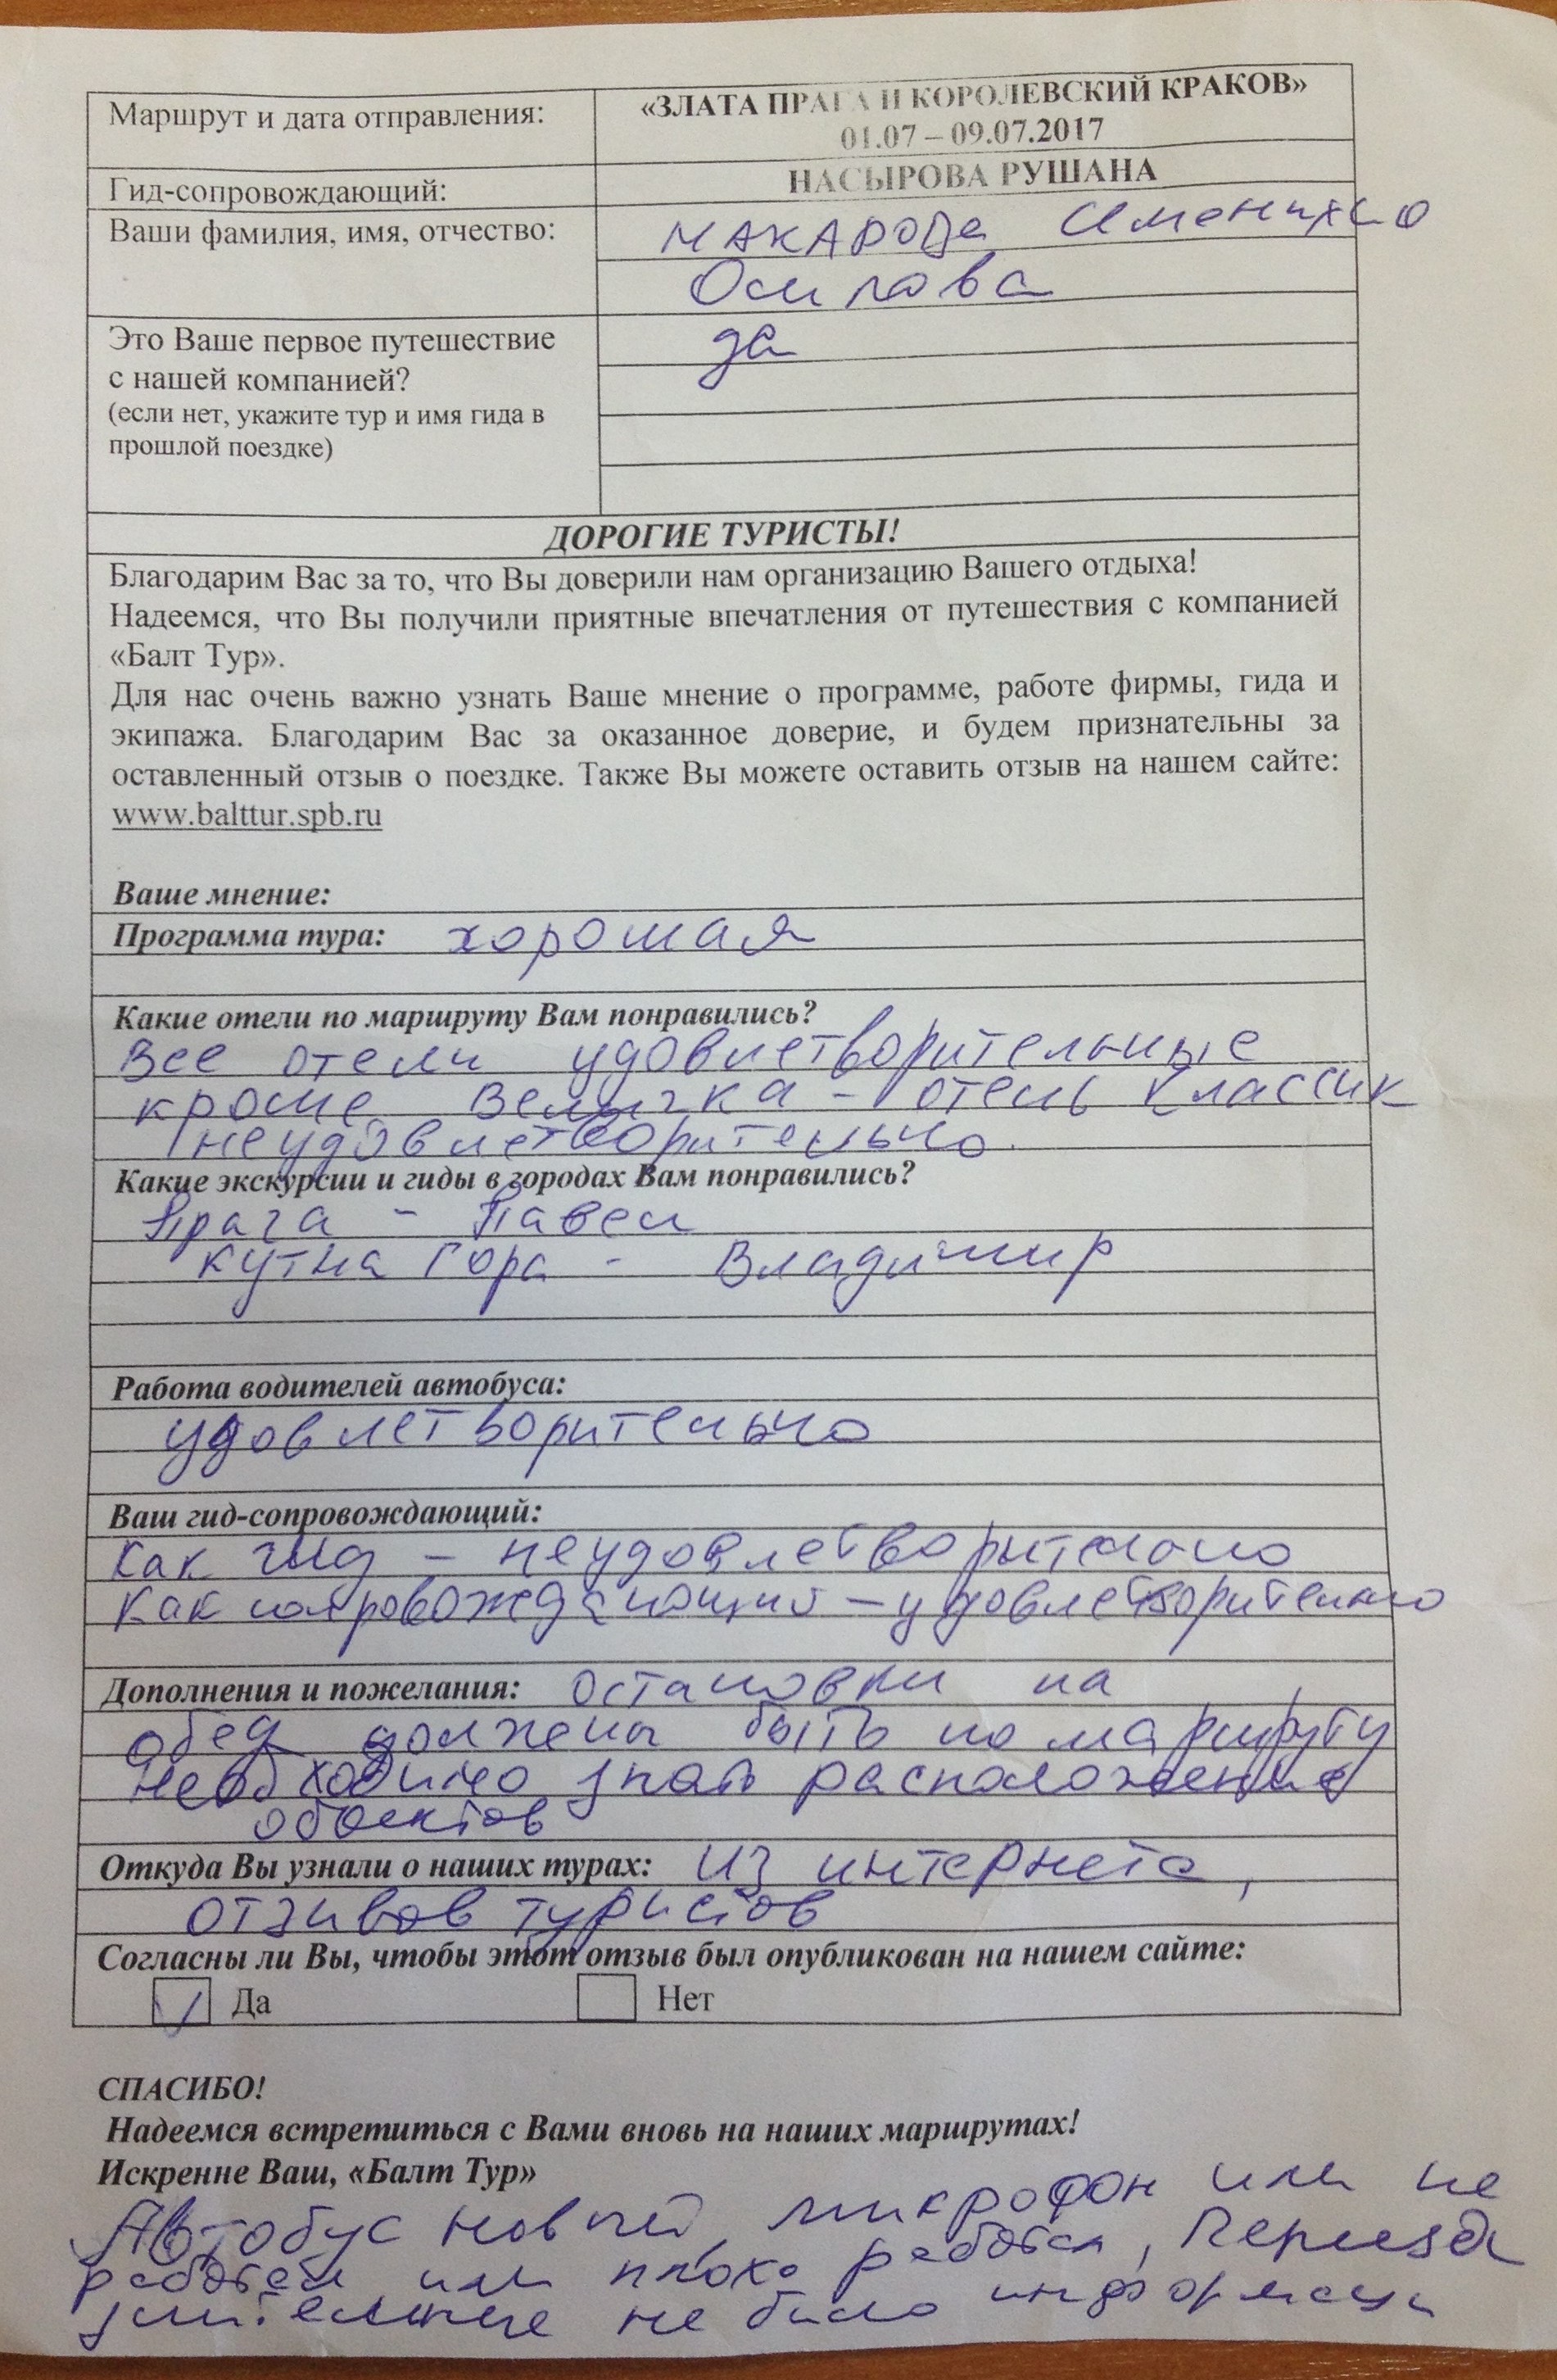 Маршрут и дата отправления:
«ЗЛАТА ПРАГА И КОРОЛЕВСКИЙ КРАКОВ»
01.07 – 09.07.2017
Гид-сопровождающий:
НАСЫРОВА РУШАНА
Ваши фамилия, имя, отчество:
МАКАРОВа
Осипова
Это Ваше первое путешествие
с нашей компанией?
(если нет, укажите тур и имя гида в
прошлой поездке)
да
ДОРОГИЕ ТУРИСТЫ!
Благодарим Вас за то, что Вы доверили нам организацию Вашего отдыха!
Надеемся, что Вы получили приятные впечатления от путешествия с компанией
«Балт Тур».
Для нас очень важно узнать Ваше мнение о программе, работе фирмы, гида и
экипажа. Благодарим Вас за оказанное доверие, и будем признательны за
оставленный отзыв о поездке. Также Вы можете оставить отзыв на нашем сайте:
www.balttur.spb.ru
Ваше мнение:
Программа тура: хорошая
Какие отели по маршруту Вам понравились?
Все отели удовлетворительные
кроме Величка - отель Классик
неудовлетворительно.
Какие экскурсии и гиды в городах Вам понравились?
Прага - Павел
Кутна Гора - Владимир
Работа водителей автобуса:
удовлетворительно
Ваш гид-сопровождающий:
Как гид - неудовлетворительно
Как сопровождающий - удовлетворительно
Дополнения и пожелания: остановки на
обед должены быть по маршруту
необходимо знать расположение
объектов
Откуда Вы узнали о наших турах: из интернета,
отзывов туристов
Согласны ли Вы, чтобы этот отзыв был опубликован на нашем сайте:
Да Нет
СПАСИБО!
Надеемся встретиться с Вами вновь на наших маршрутах!
Искренне Ваш, «Балт Тур»
Автобус новый, микрофон или не
работал или плохо работал,
длительные не было информации